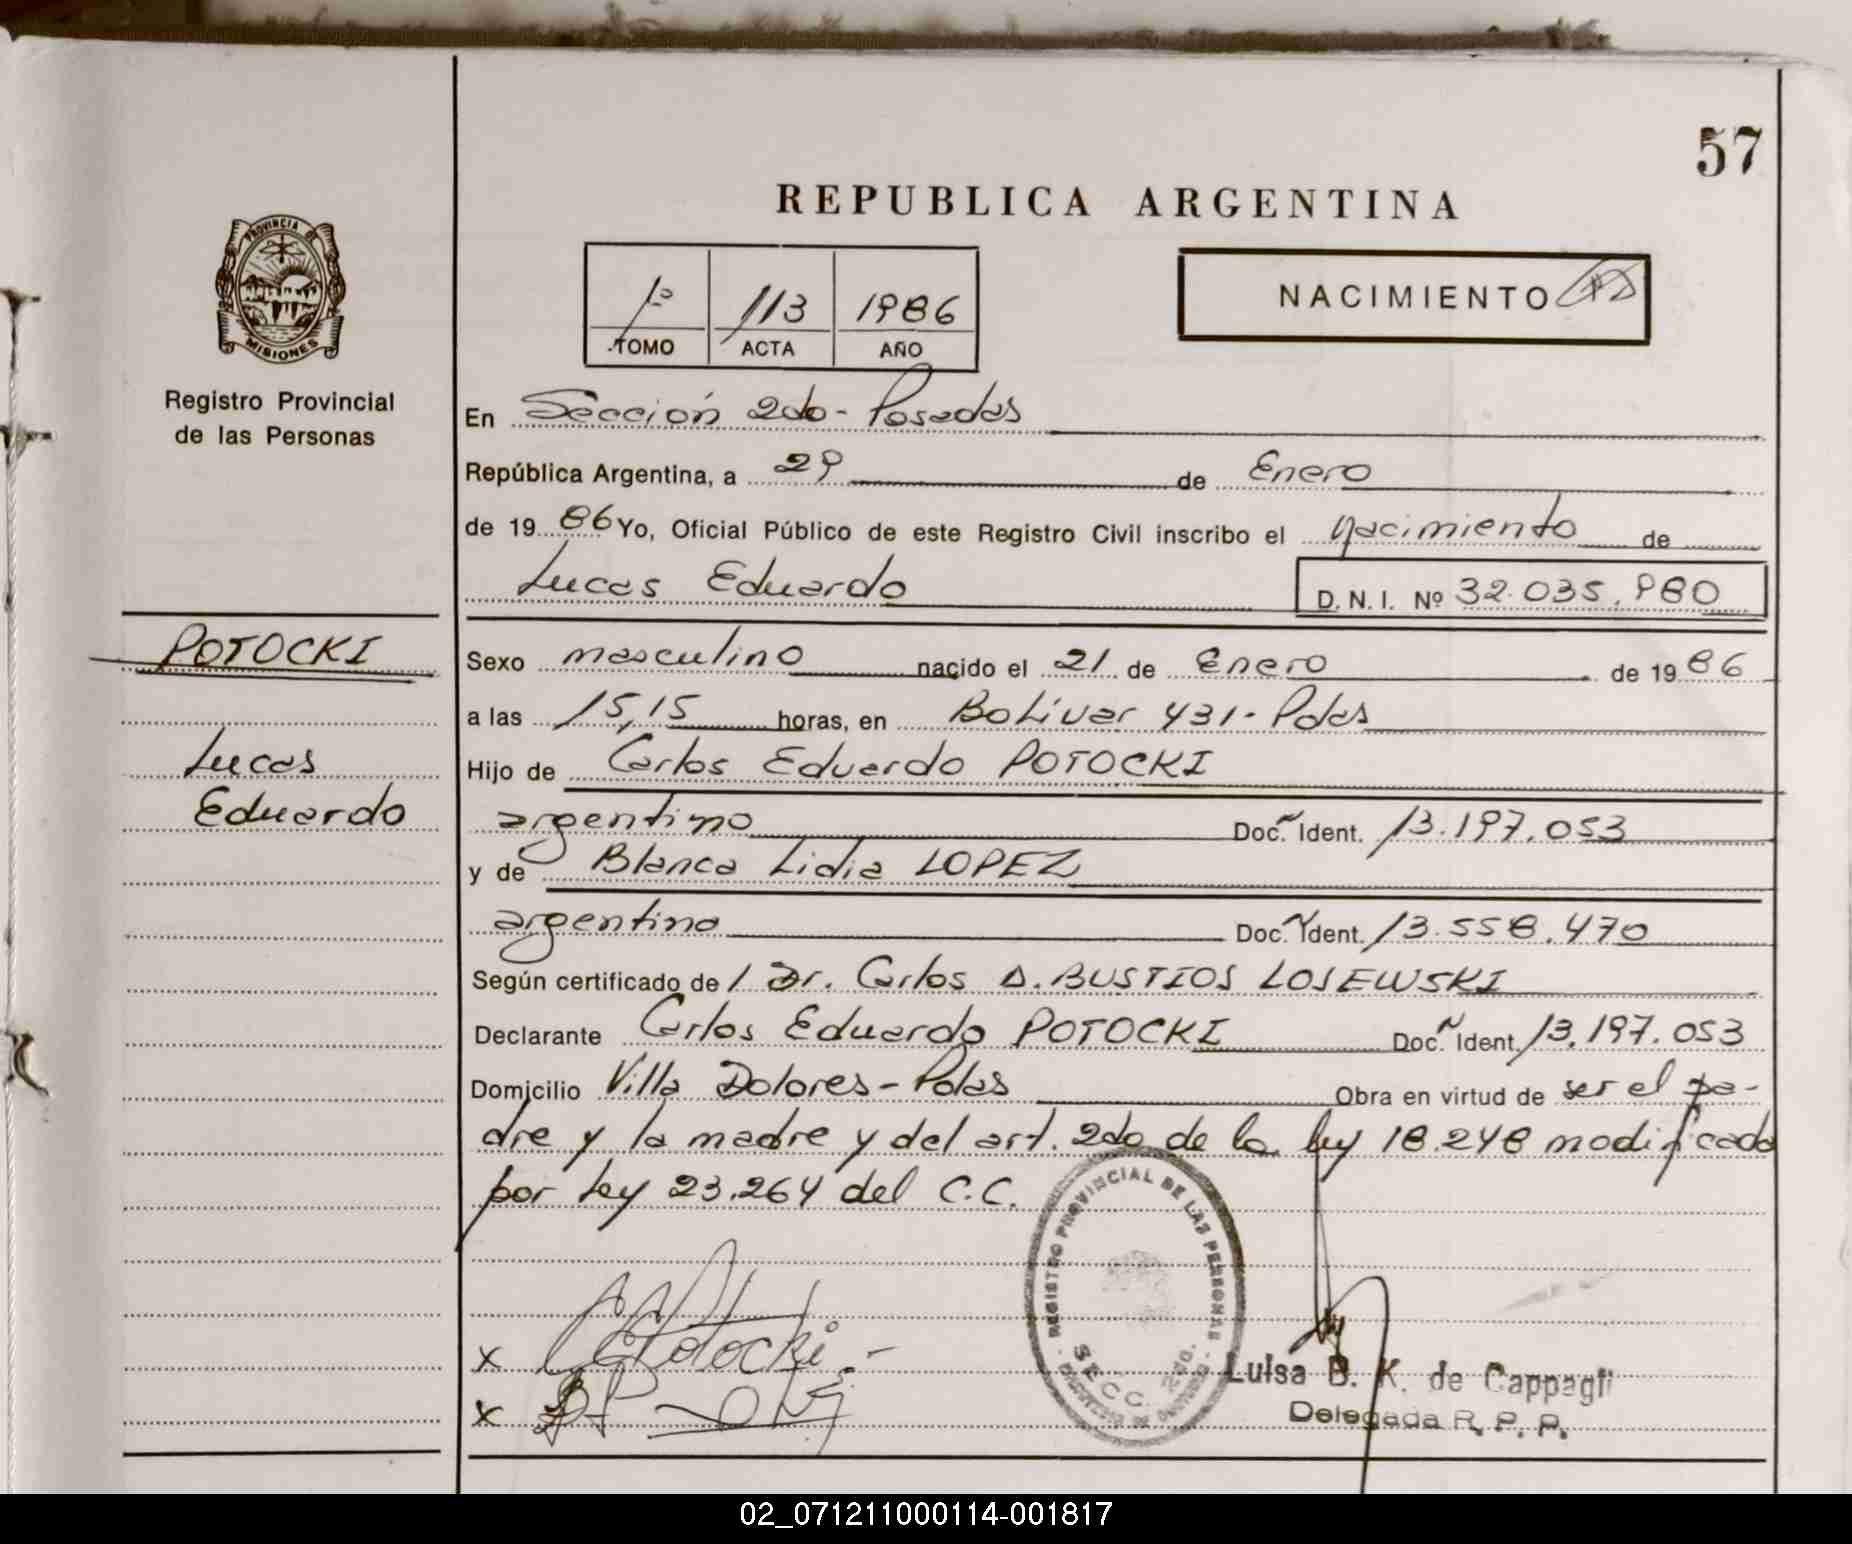 57
REPUBLICA ARGENTINA
PROVINCIA DE
MISIONES
Registro Provincial
de las Personas
1º 113 1986
TOMO ACTA AÑO
NACIMIENTO
En Sección 2da - Posadas
República Argentina, a 29 de Enero
de 1986 Yo, Oficial Público de este Registro Civil inscribo el nacimiento de
Lucas Eduardo D. N. I. Nº 32.035.980
POTOCKI
Lucas
Eduardo
Sexo masculino nacido el 21 de Enero de 1986
a las 15,15 horas, en Bolivar 431 - Pdas
Hijo de Carlos Eduardo POTOCKI
argentino Doc. Ident. 13.197.053
y de Blanca Lidia LOPEZ
argentina Doc. Ident. 13.558.470
Según certificado de / Dr. Carlos D. BUSTIOS LOSEWSKI
Declarante Carlos Eduardo POTOCKI Doc. Ident. 13.197.053
Domicilio Villa Dolores - Pdas Obra en virtud de ser el pa-
dre y la madre y del art. 2do de la ley 18.248 modificado
por Ley 23.264 del C.C.
REGISTRO PROVINCIAL DE LAS PERSONAS
SECC. 2da.
x Potocki
x
Luisa B. K. de Cappagli
Delegada R. P. P.
02_071211000114-001817